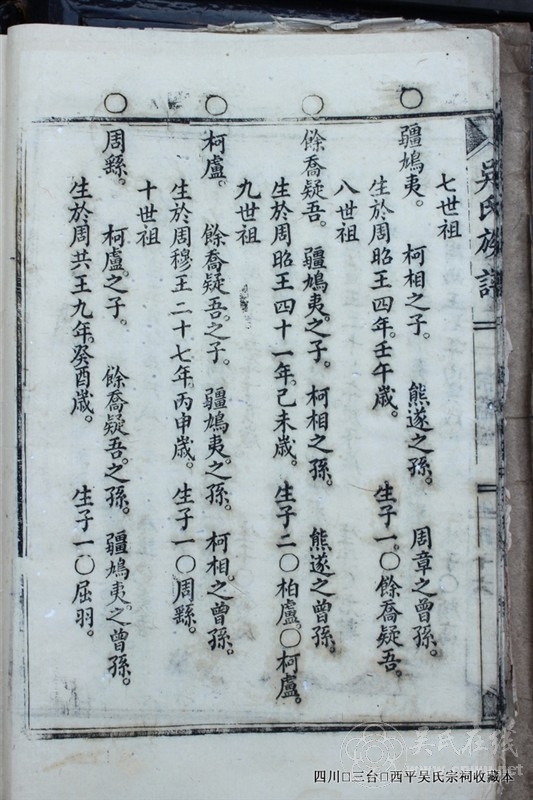 吳氏族譜
七世祖
○疆鳩夷。 柯相之子。 熊遂之孫。 周章之曾孫。
生於周昭王四年。壬午歲。 生子一。○餘喬疑吾。
八世祖
○餘喬疑吾。 疆鳩夷。之子。 柯相之孫。 熊遂之曾孫。
生於周昭王四十一年。己未歲。 生子二○柏盧。○柯盧。
九世祖
○柯盧。 餘喬疑吾。之子。 疆鳩夷。之孫。 柯相之曾孫。
生於周穆王二十七年。丙申歲。 生子一○周繇。
十世祖
○周繇。 柯盧。之子。 餘喬疑吾。之孫。 疆鳩夷。之曾孫。
生於周共王九年。癸酉歲。 生子一○屈羽。
吴氏在线
四川□三台□西平吴氏宗祠收藏本